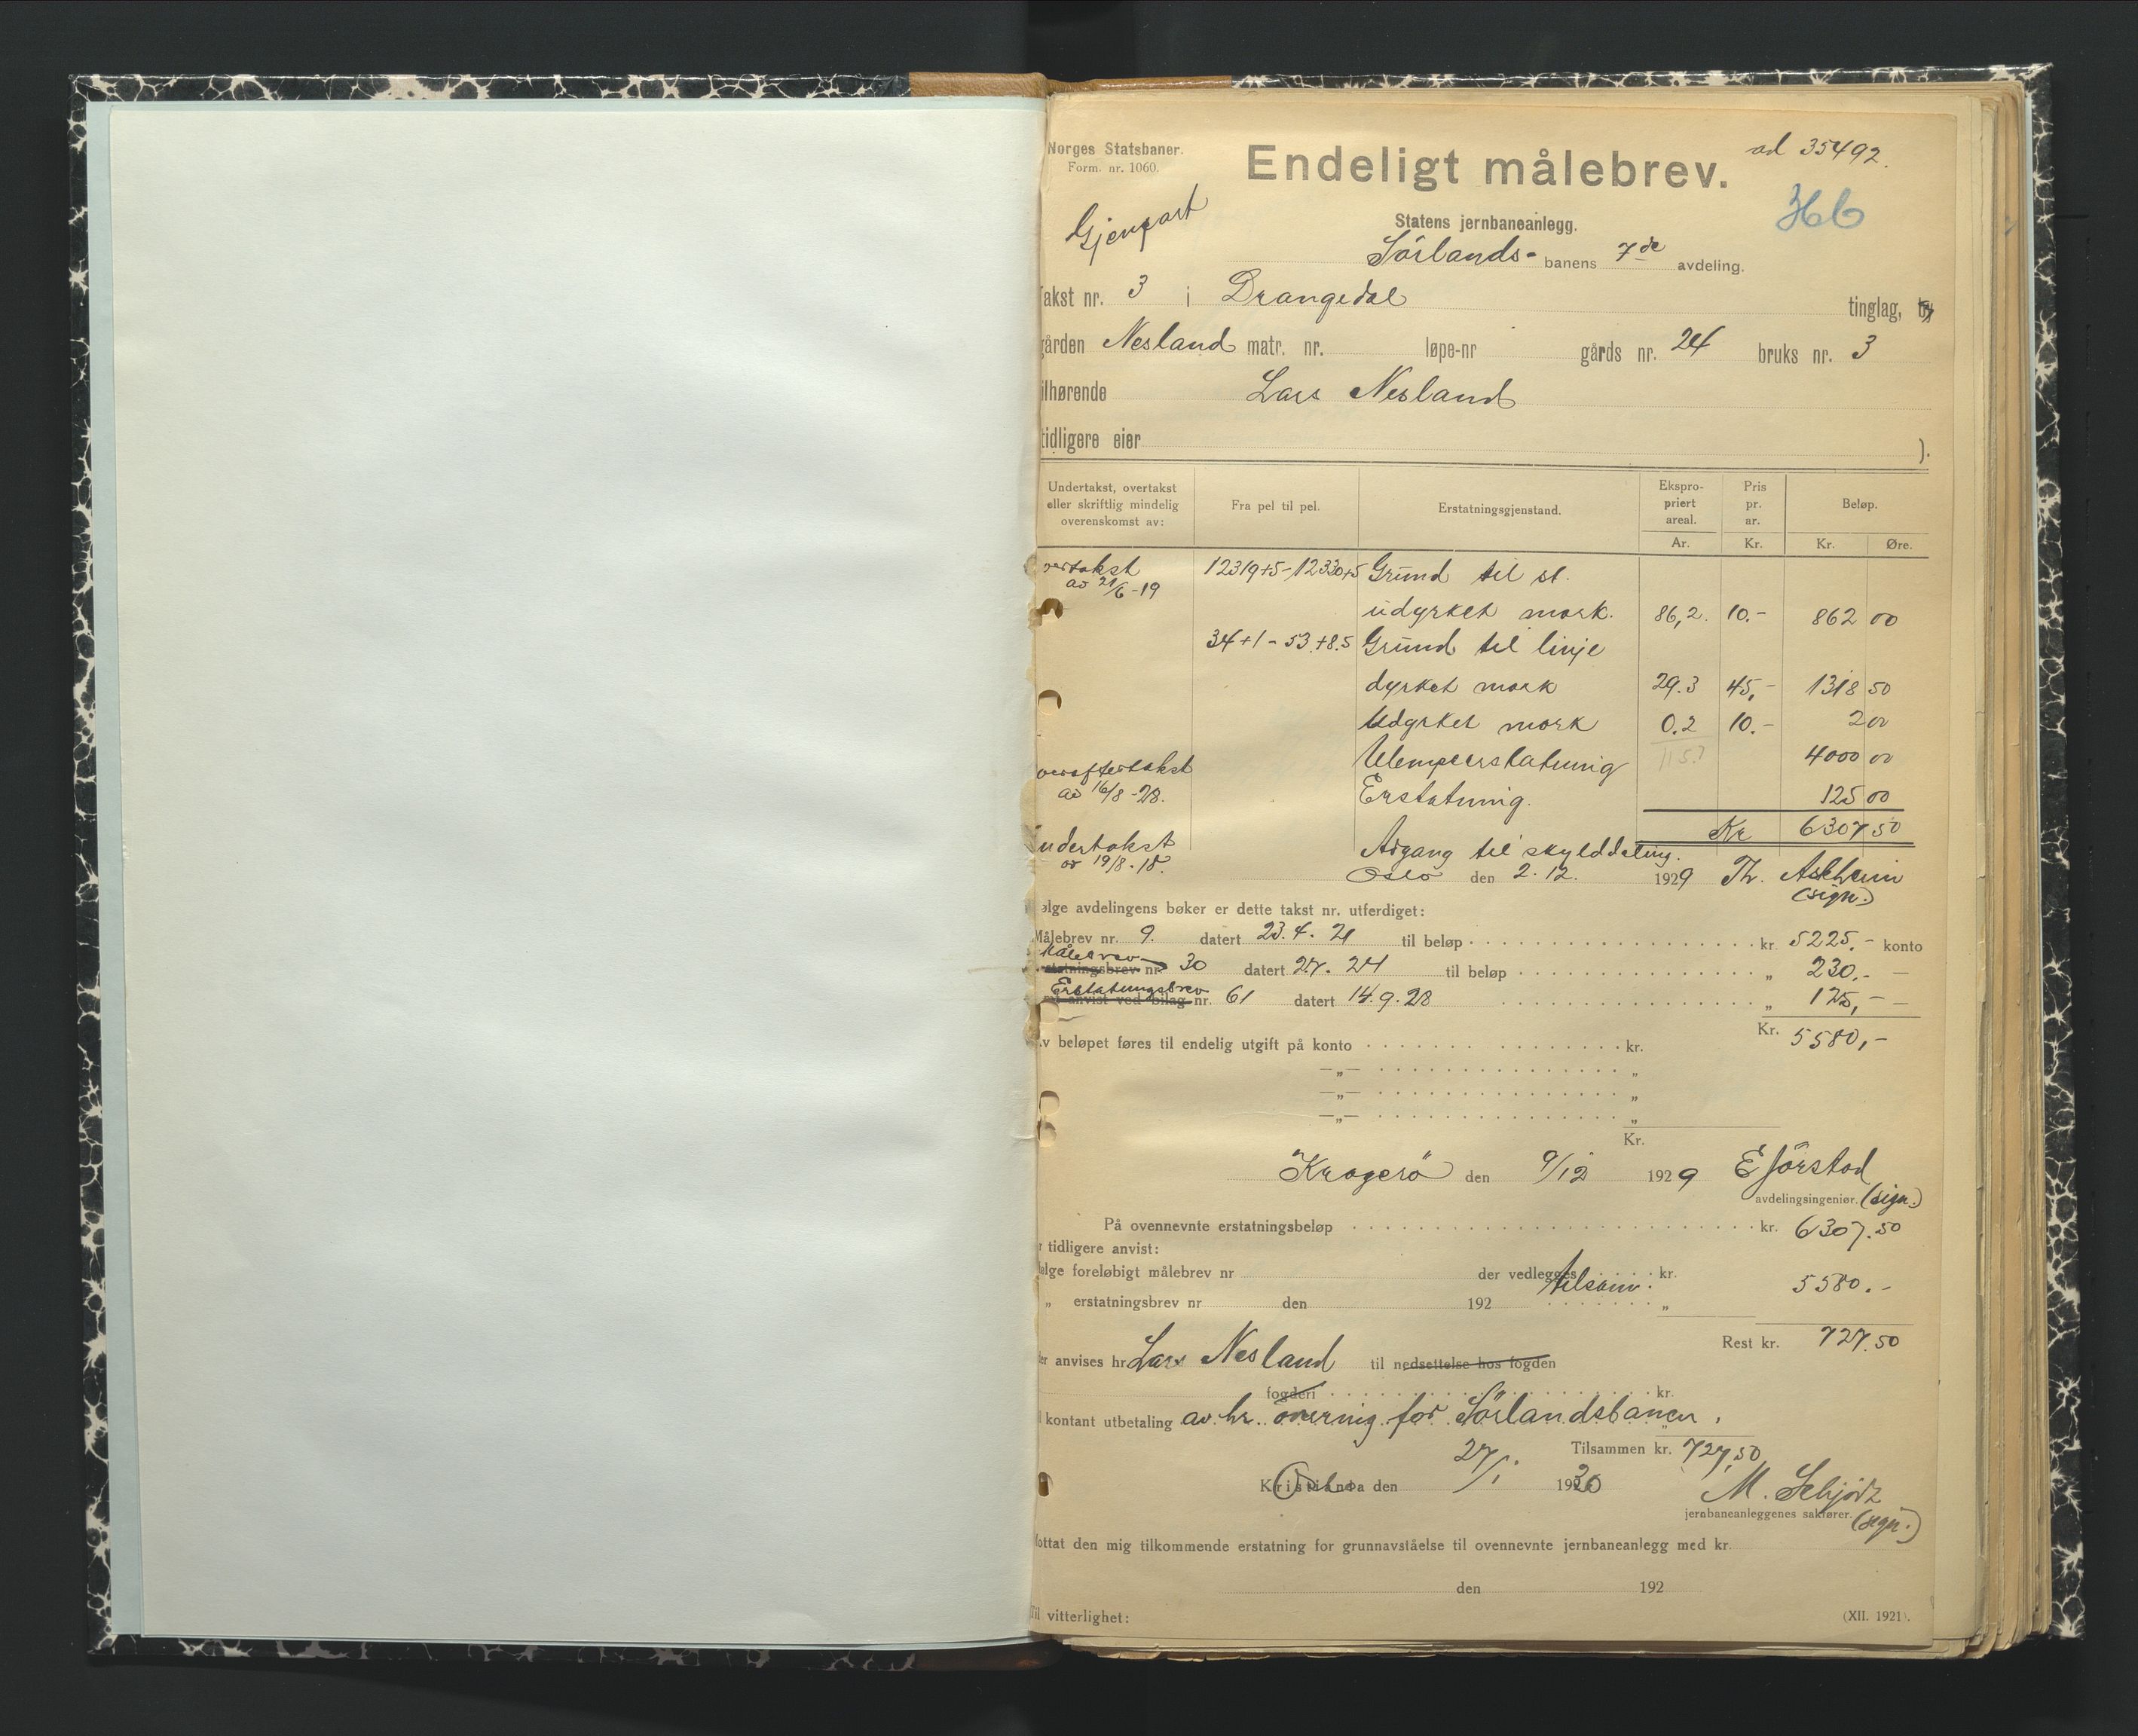 Norges Statsbaner.
Form. nr. 1060.
Endeligt målebrev.
ad 35492.
Gjenpart
Statens jernbaneanlegg.
Sörlands- banens 7de avdeling.
Takst nr. 3 i Drangedal tinglag, by
gården Nesland matr. nr. løpe-nr gårds nr. 24 bruks nr. 3
tilhørende Lars Nesland
tidligere eier ).
Undertakst, overtakst eller skriftlig mindelig overenskomst av: Fra pel til pel. Erstatningsgjenstand. Ekspropriert areal. Ar. Pris pr. ar. Kr. Beløp. Kr. Øre.
overtakst 12319+5-12330+5 Grund til st.
av 21/6-19
udyrket mark. 86,2. 10.- 862 00
34+1-53+8.5 Grund til linje
dyrket mark 29.3 45,- 1318 50
Udyrket mark 0.2 10.- 2 00
Ulempeerstatning 4000 00
overeftertakst
av 16/8-28. Erstatning. 125 00
Kr 6307 50
undertakst Adgang til skylddeling.
av 19/8-18.
Oslo den 2.12. 1929 Th. Askheim
(sign.)
ølge avdelingens bøker er dette takst nr. utferdiget:
Målebrev nr. 9. datert 23.4.21 til beløp kr. 5225.- konto
Målebrev
statningsbrev nr. 30 datert 27. 24 til beløp „ 230.- —
Erstatningsbrev
anvist ved bilag nr. 61 datert 14.9.28 „ 125,- —
Kr. 5580,-
Av beløpet føres til endelig utgift på konto kr.
—„— „
—„— „
—„— „
Kr.
Kragerö den 9/12 1929 E Jörstad
avdelingsingeniør. (sign.)
På ovennevnte erstatningsbeløp kr. 6307.50
r tidligere anvist:
ølge foreløbigt målebrev nr der vedlegges kr.
tilsam. 5580.-
„ erstatningsbrev nr den 192 „
Rest kr. 727.50
er anvises hr. Lars Nesland til nedsettelse hos fogden
fogderi kr.
l kontant utbetaling av hr. overing. for Sörlandsbanen.
Tilsammen kr. 727,50
Kristiania Oslo den 27/1 1930
M. Schjötz
jernbaneanleggenes sakfører. (sign.)
Mottat den mig tilkommende erstatning for grunnavståelse til ovennevnte jernbaneanlegg med kr.
den 192
Til vitterlighet:
(XII. 1921).